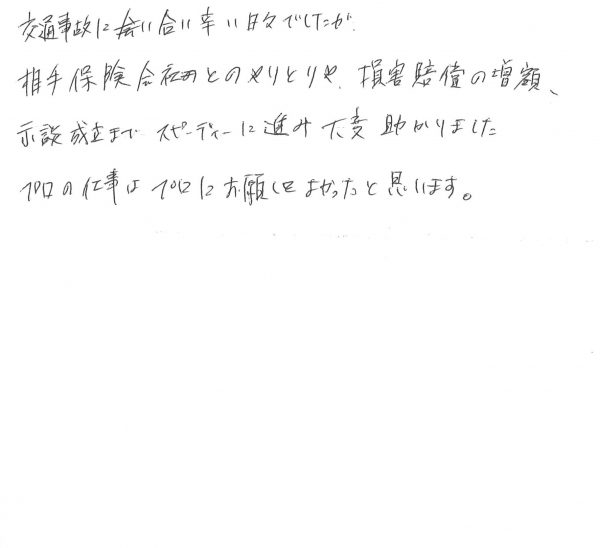 交通事故に合い辛い日々でしたが、
相手保険会社とのやりとりや、損害賠償の増額、
示談成立まで スピーディーに進み大変助かりました
プロの仕事はプロにお願いしてよかったと思います。